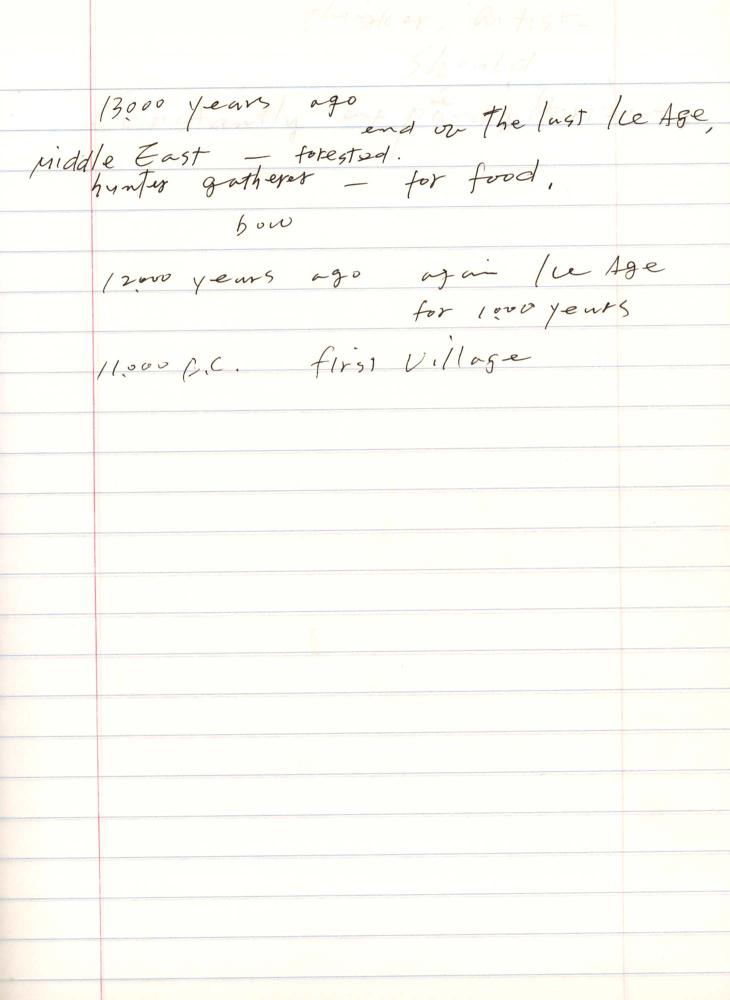 13,000 years ago
end of the last Ice Age,
Middle East — forested.
hunter gatherer — for food.
bow
12,000 years ago again Ice Age
for 1,000 years
11,000 B.C. first village